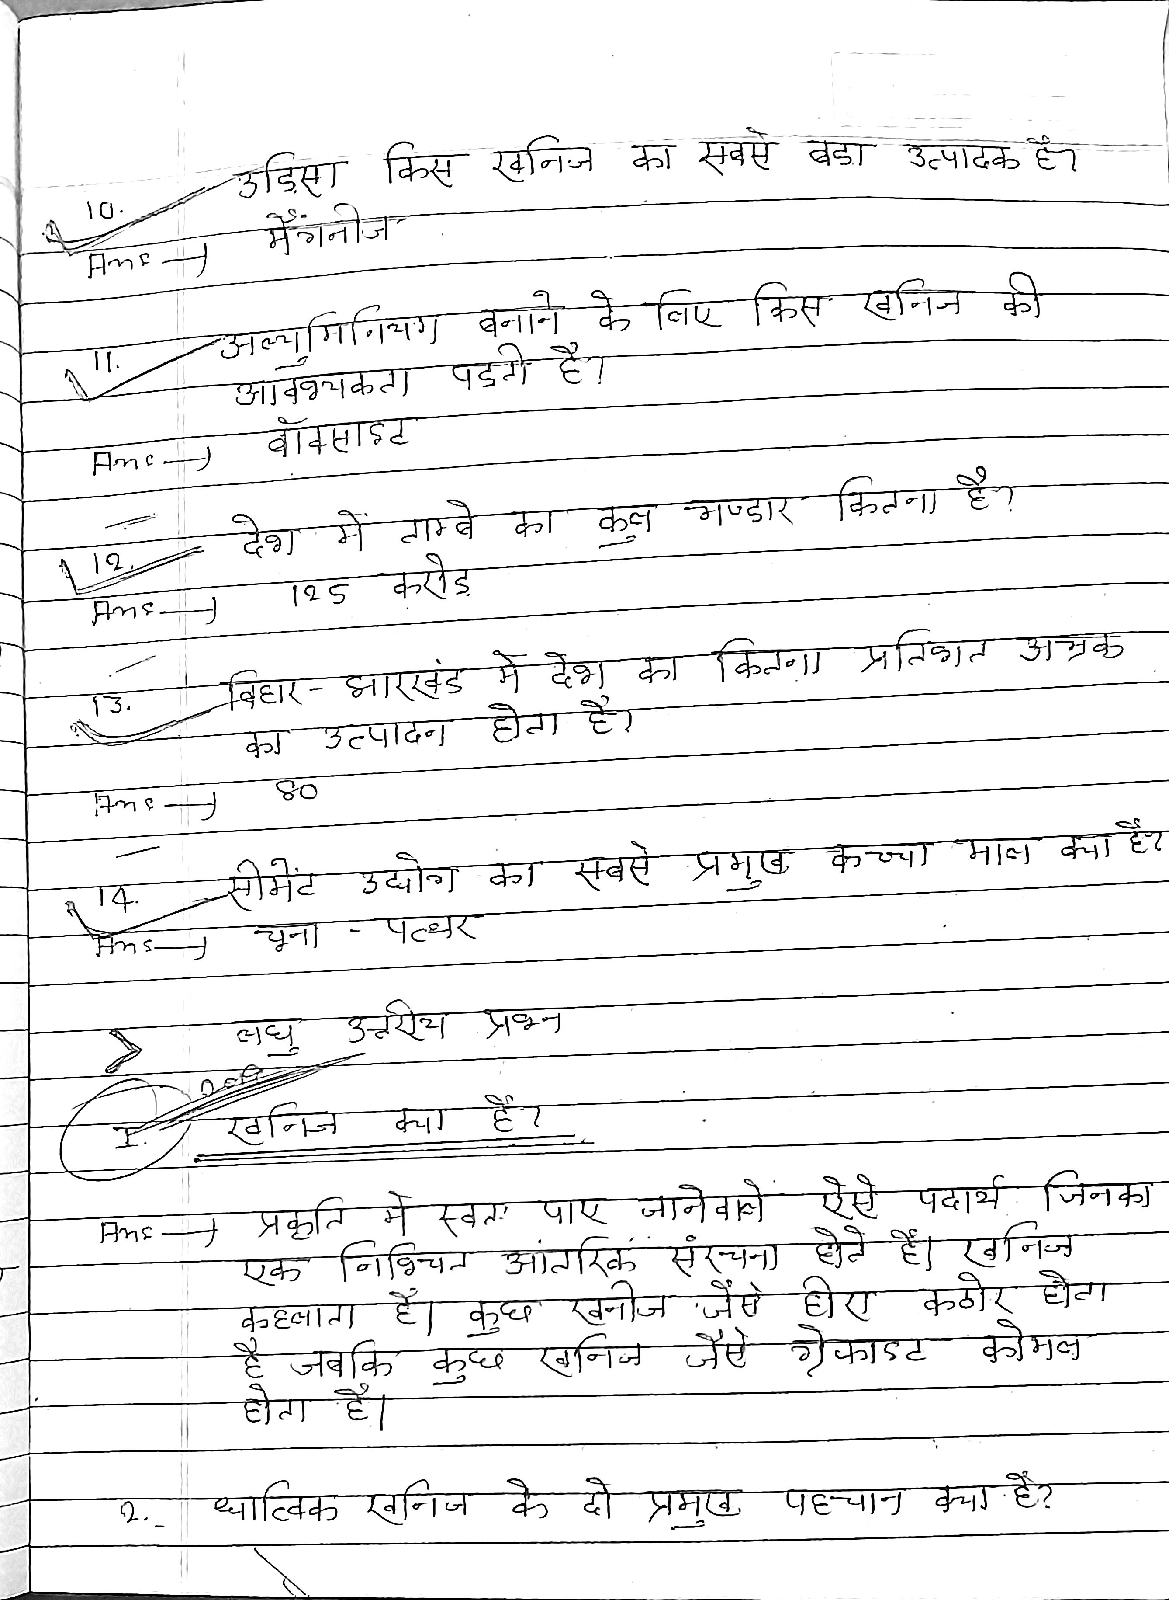 10. उड़िसा किस खनिज का सबसे बडा उत्पादक है?
Ans → मैंगनीज
11. अल्युमिनियम बनाने के लिए किस खनिज की
आवश्यकता पडती है?
Ans → बॉक्साइट
12. देश में ताम्बे का कुल भण्डार कितना है?
Ans → 125 करोड़
13. बिहार - झारखंड में देश का कितना प्रतिशत अभ्रक
का उत्पादन होता है?
Ans → 80
14. सीमेंट उद्योग का सबसे प्रमुख कच्चा माल क्या है?
Ans → चूना - पत्थर
लघु उत्तरीय प्रश्न
1. खनिज क्या है?
Ans → प्रकृति में स्वतः पाए जानेवाले ऐसे पदार्थ जिनका
एक निश्चित आंतरिक संरचना होते हैं। खनिज
कहलाता है। कुछ खनीज जैसे हीरा कठोर होता
है जबकि कुछ खनिज जैसे ग्रेफाइट कोमल
होता है।
2. धात्विक खनिज के दो प्रमुख पहचान क्या है?